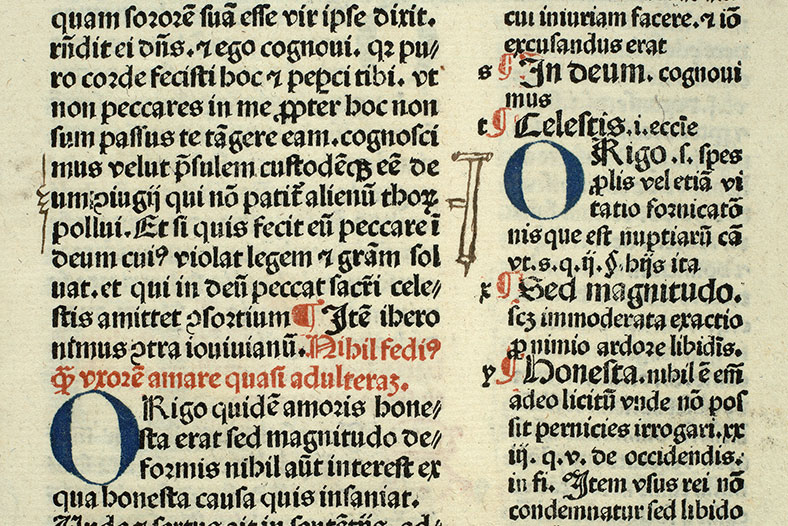 quam sororē suā esse vir ipse dixit.
rn̄dit ei dn̄s. ⁊ ego cognoui. qꝛ pu⸗
ro corde fecisti hoc ⁊ peꝑci tibi. vt
non peccares in me ꝓpter hoc non
sum passus te tāgere eam. cognosci
mus velut p̄sulem custodēqꝫ eē de
um ꝯiugij qui nō patit᷑ alienū thoꝝ
pollui. Et si quis fecit eū peccare ī
deum cuiꝰ violat legem ⁊ grām sol
uat. et qui in deū peccat sacr̄i cele⸗
stis amittet ꝯsortium ¶ Itē ihero
nimus ꝯtra iouiuianū. Nihil fediꝰ
qꝫ̄ vxorē amare quasi adulteraꝫ.
ORigo quidē amoris hone⸗
sta erat sed magnitudo de⸗
formis nihil aūt interest ex
qua honesta causa quis insaniat.
cui iniuriam facere. ⁊ iō
excusandus erat
s ¶ In deum. cognoui
mus
t ¶ Celestis. i. eccīe
ORigo. s. spes
ꝓlis vel etiā vi
tatio fornicatōnis
nis que est nuptiarū cā
vt. s. q. ij. §. hijs ita
x ¶ Sed magnitudo.
scꝫ immoderata exactio
ꝓ nimio ardore libidīs.
y ¶ Honesta. nihil ē em̄
adeo licitū vnde nō pos
sit pernicies irrogari. xx
iij. q. v. de occidendis.
in fi. Item vsus rei nō
condemnatur sed libido